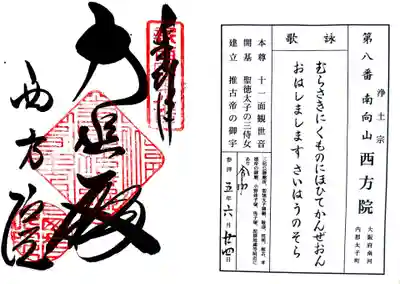 浄土宗
第八番 南向山 西方院
大阪府南河
内郡太子町
詠歌
むらさきにくものにほひてかんぜおん
おはしまします さいはうのそら
本尊 十一面観世音
開基 聖徳太子の三侍女
建立 推古帝の御宇
参拝 令和五年六月廿四日
奉拝
大悲殿
西方院